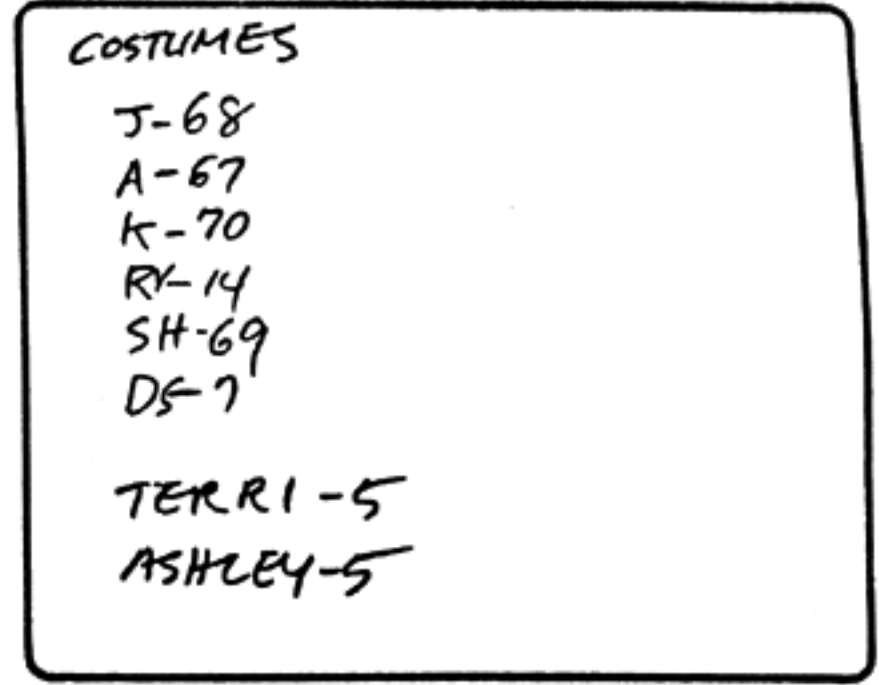 COSTUMES
J-68
A-67
K-70
RY-14
SH-69
DS-7
TERRI-5
ASHLEY-5